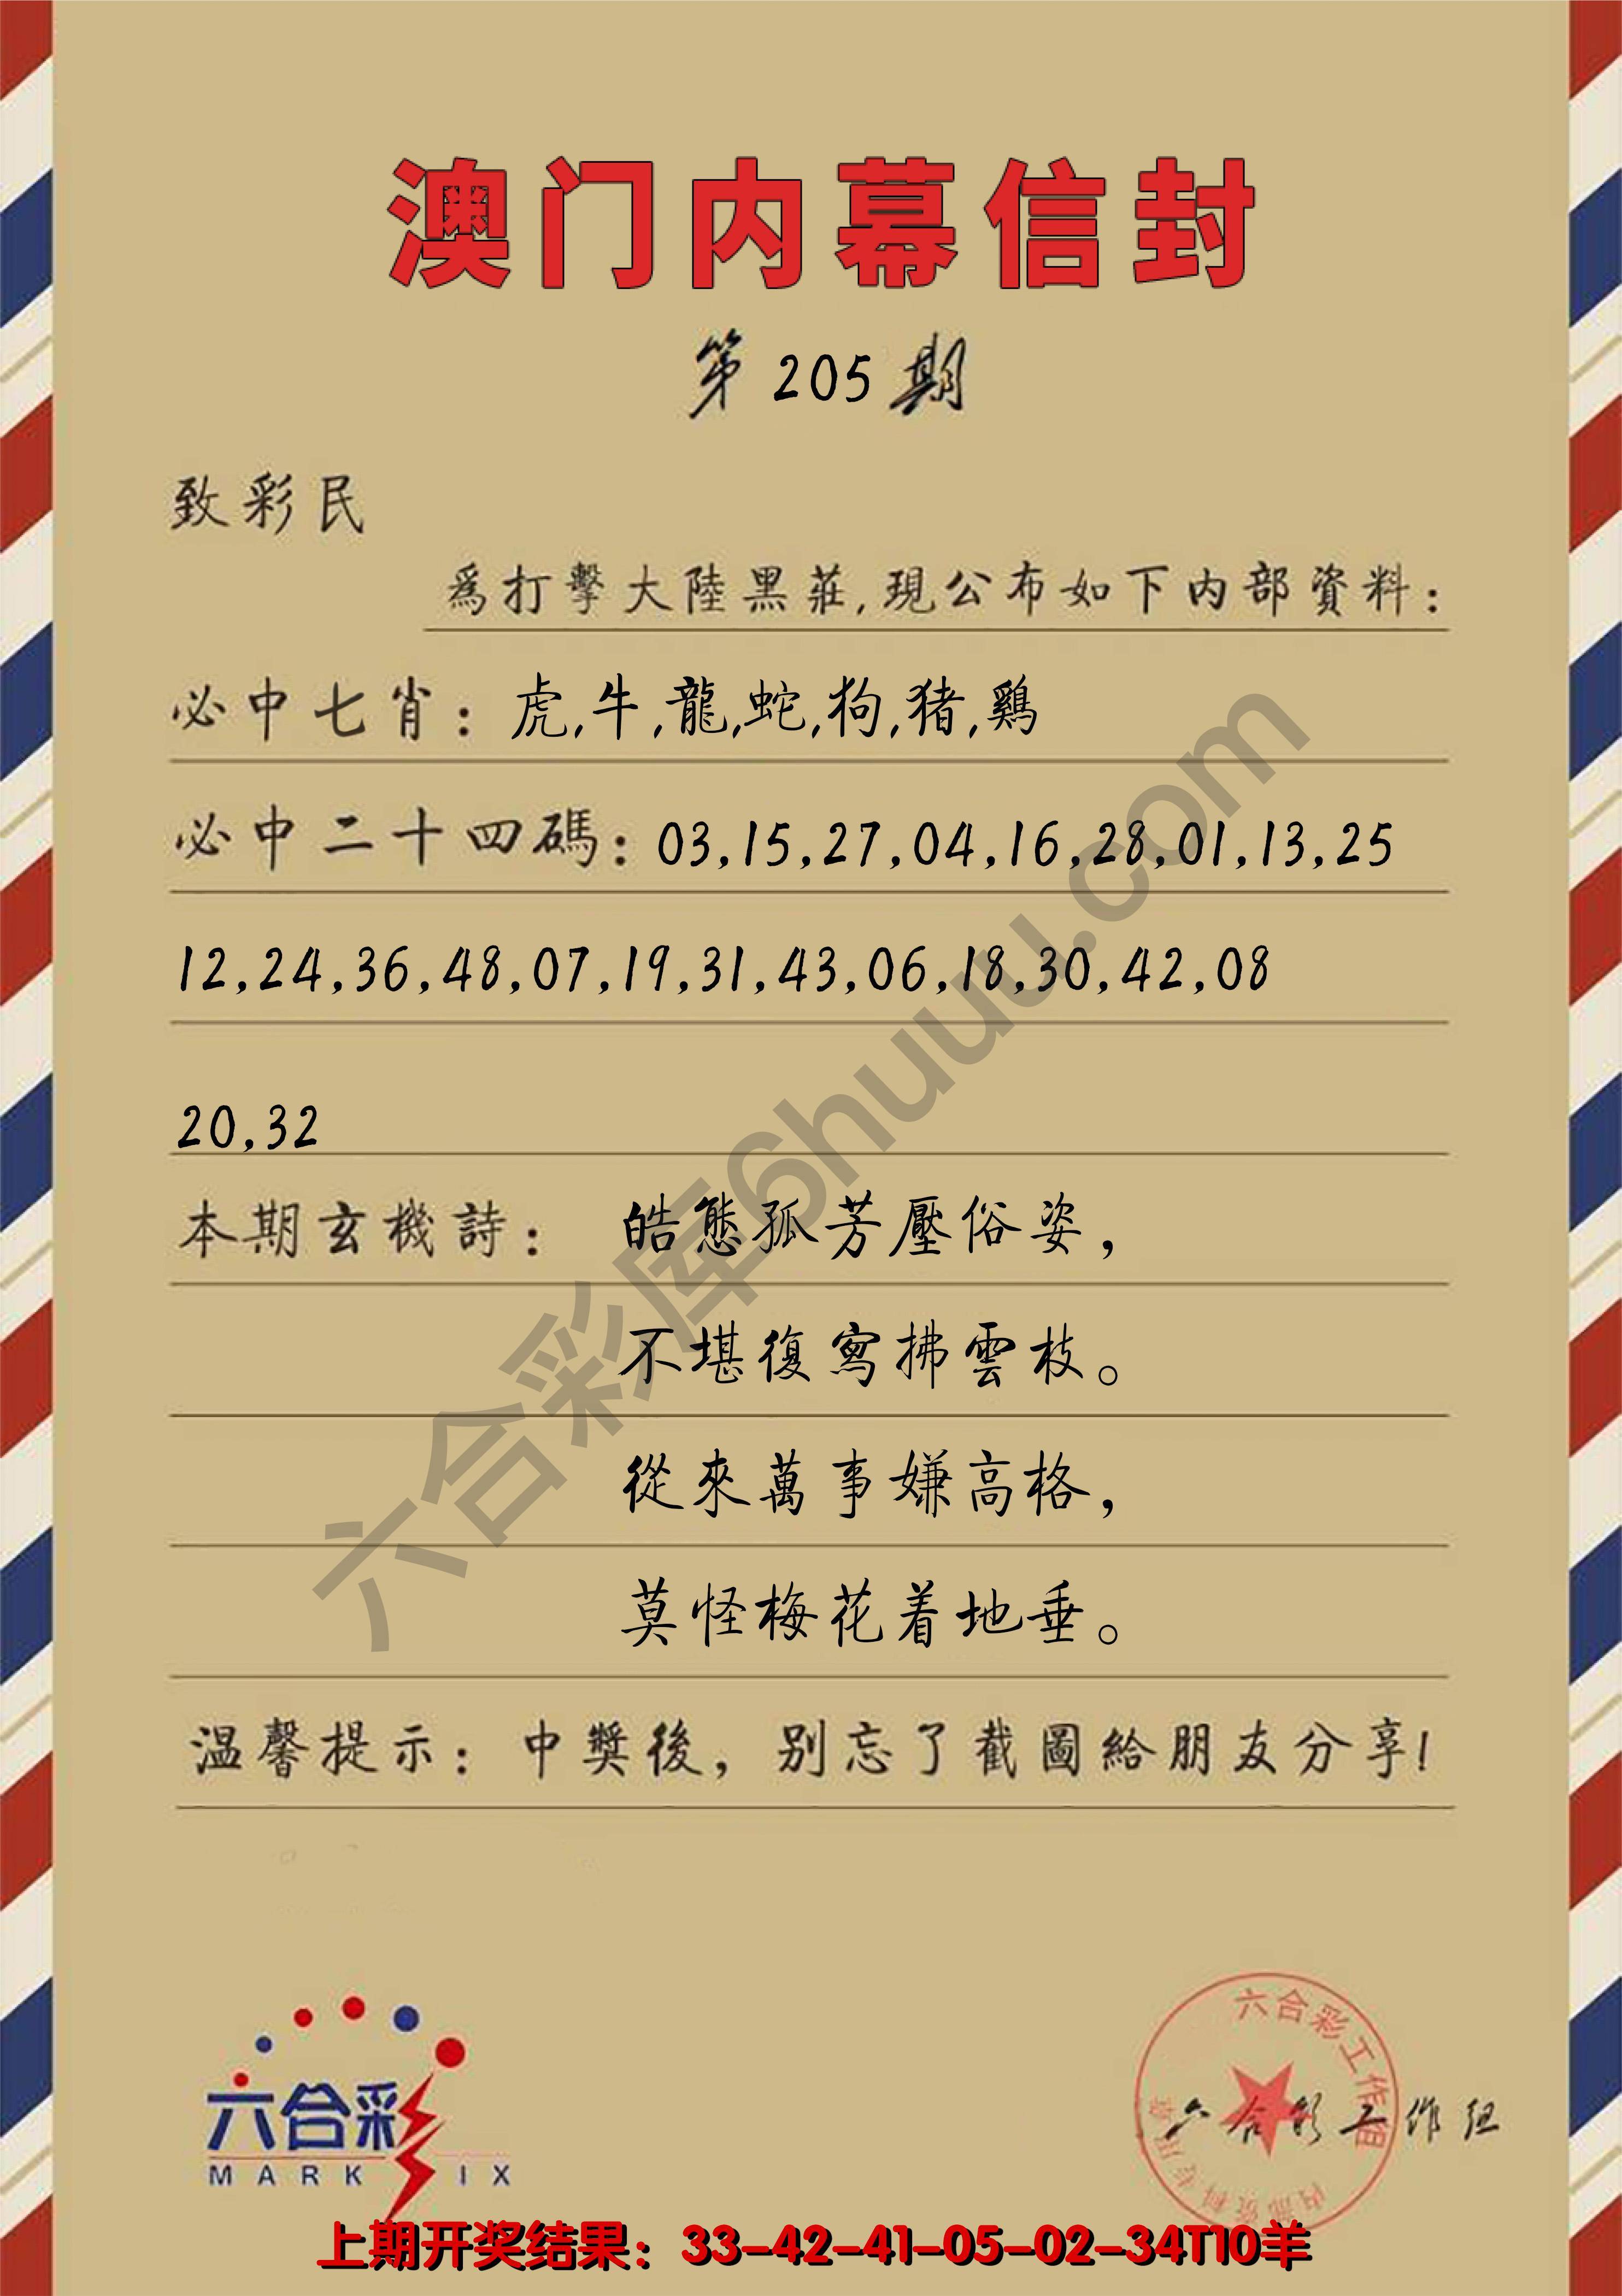 澳门内幕信封
第205期
致彩民
為打擊大陸黑莊,現公布如下内部資料:
必中七肖: 虎,牛,龍,蛇,狗,猪,鷄
必中二十四碼: 03,15,27,04,16,28,01,13,25
12,24,36,48,07,19,31,43,06,18,30,42,08
20,32
本期玄機詩: 皓態孤芳壓俗姿,
不堪復寫拂雲枝。
從來萬事嫌高格,
莫怪梅花着地垂。
温馨提示: 中獎後,别忘了截圖給朋友分享!
六合彩库6huuu.com
六合彩
MARK IX
六合彩工作组
六合彩工作组
上期开奖结果：33-42-41-05-02-34T10羊